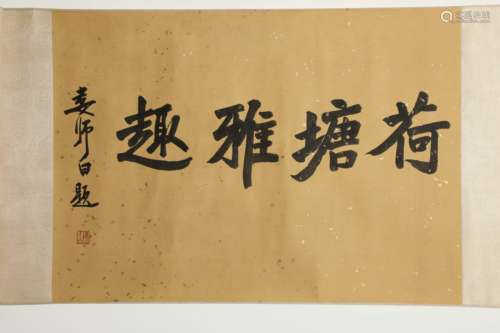 荷塘雅趣
娄师白题